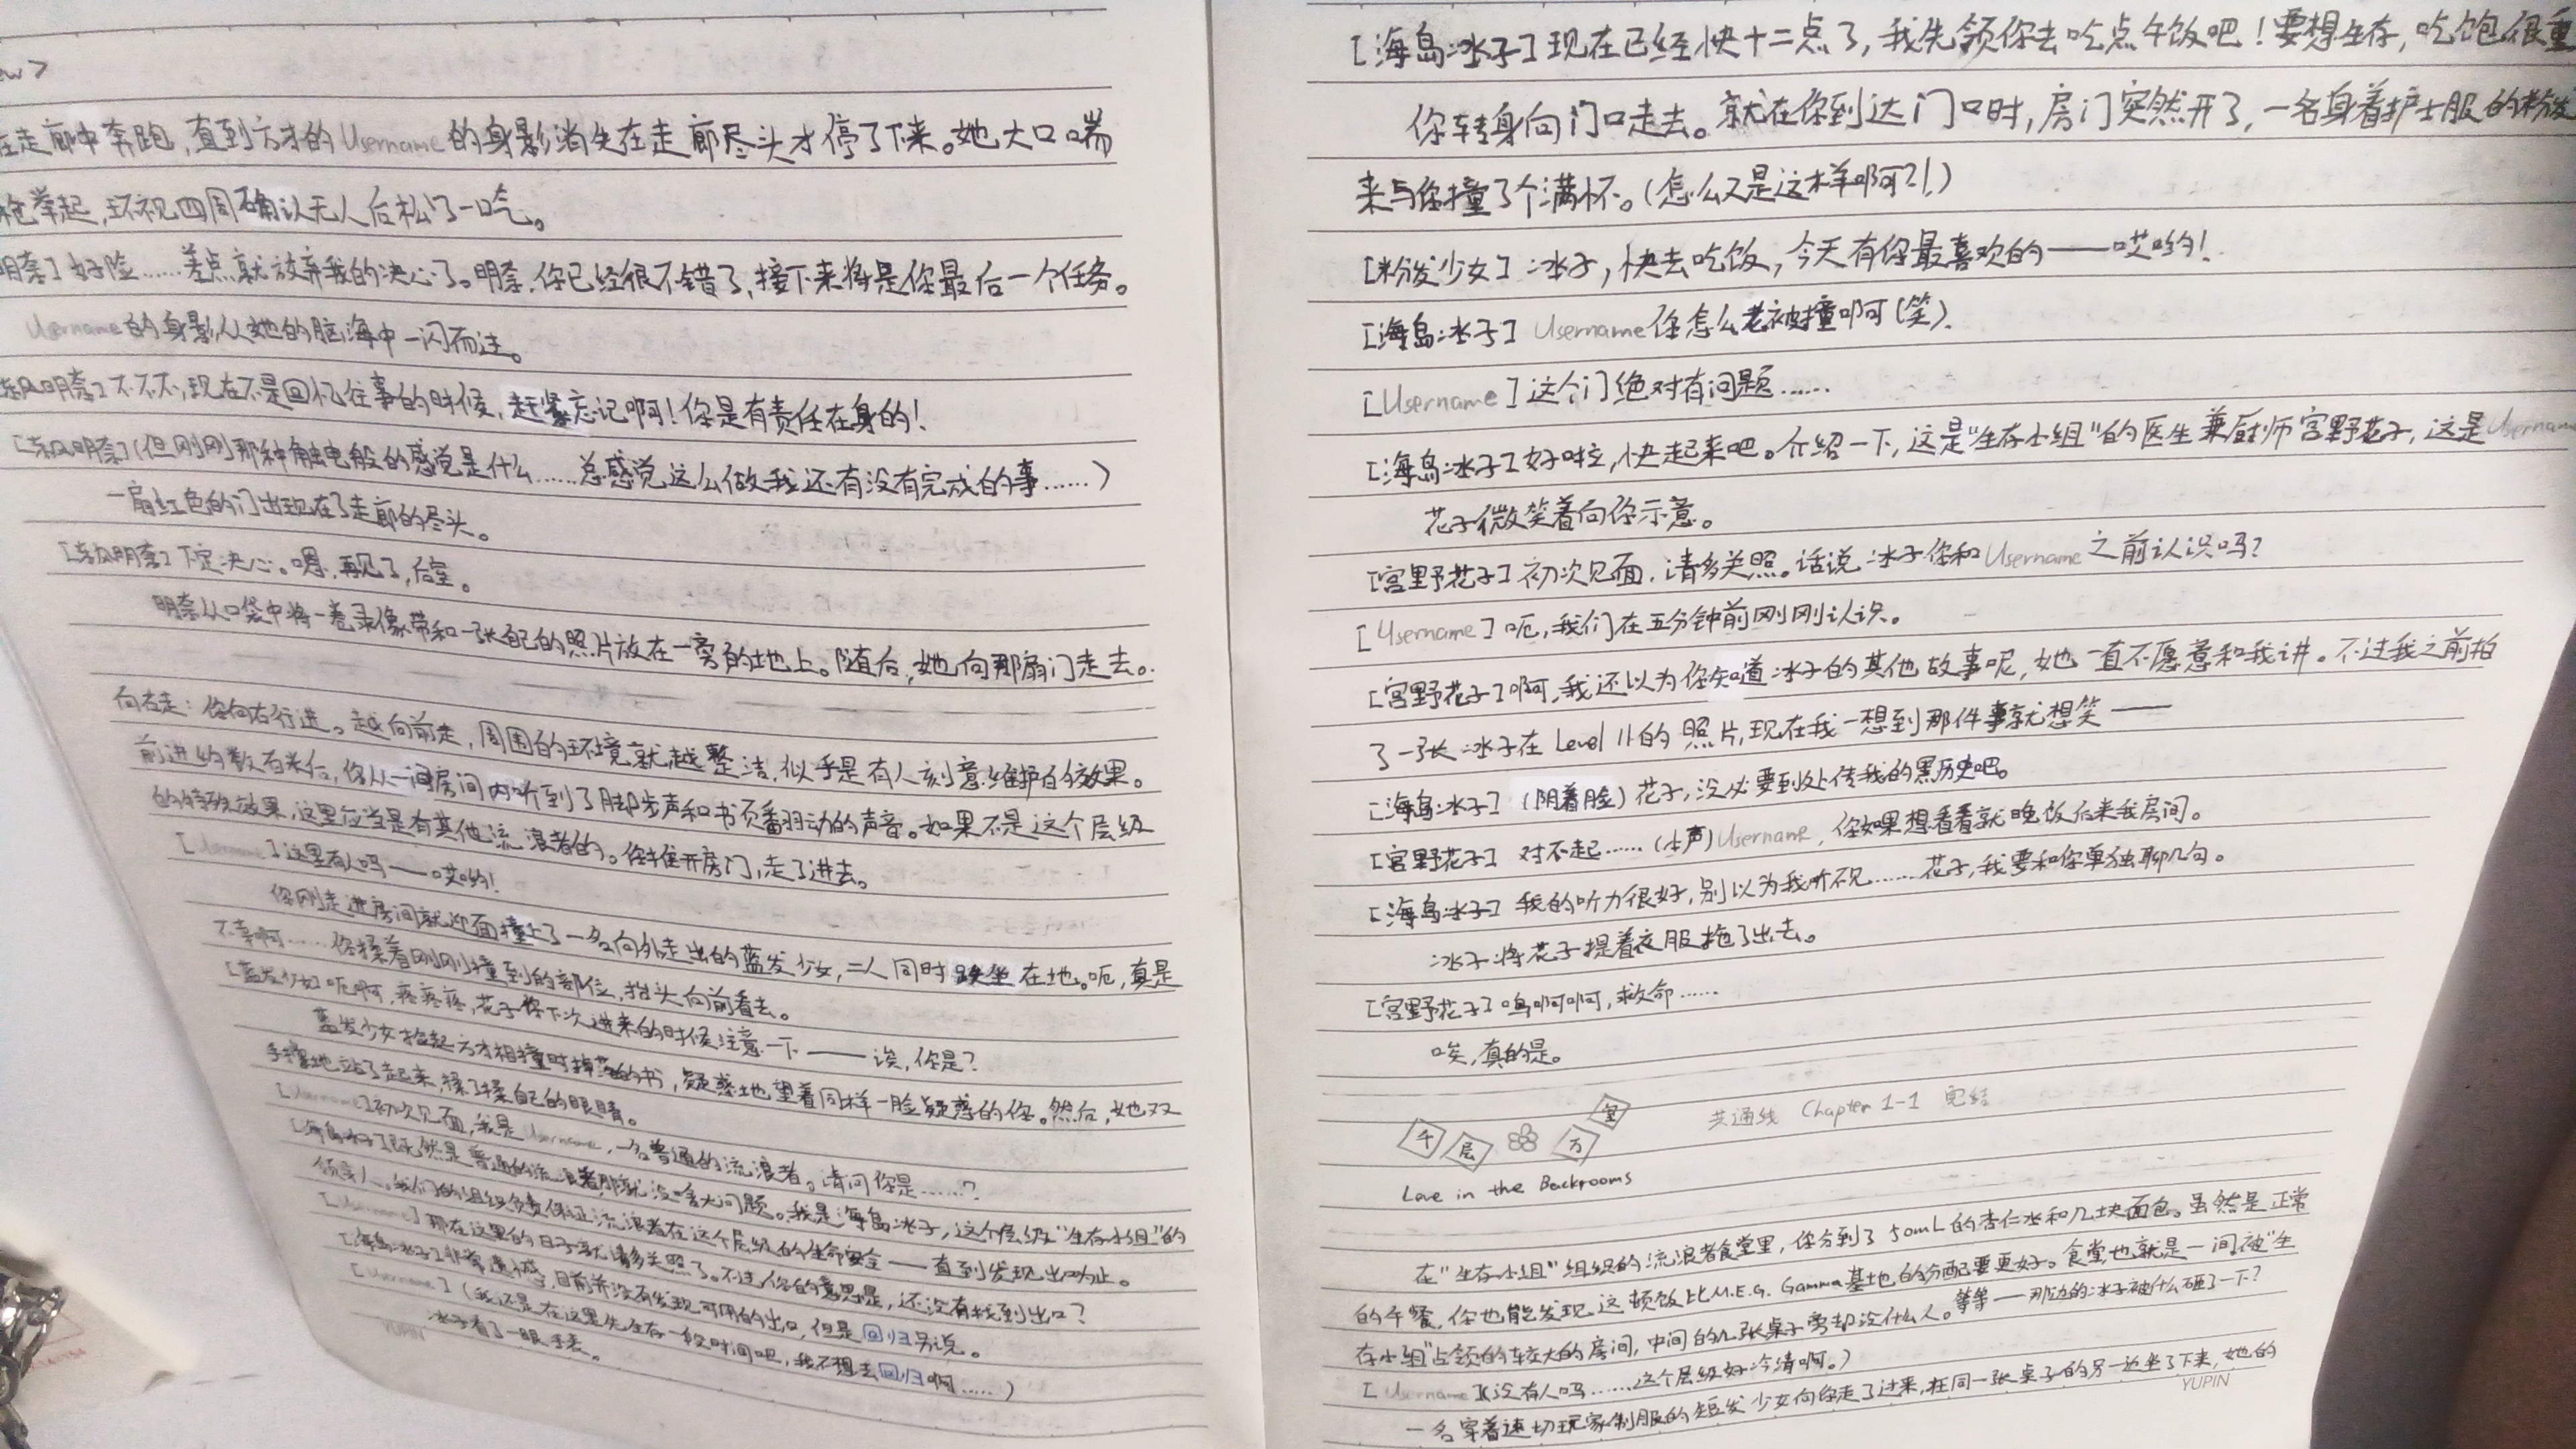 ew>
在走廊中奔跑，直到方才的Username的身影消失在走廊尽头才停了下来。她大口喘
枪举起，环视四周确认无人后松了一口气。
明奈］好险……差点就放弃我的决心了。明奈，你已经很不错了，接下来将是你最后一个任务。
Username的身影从她的脑海中一闪而过。
明奈］不不不，现在不是回忆往事的时候，赶紧忘记啊！你是有责任在身的！
明奈］(但刚刚那种触电般的感觉是什么……总感觉这么做我还有没有完成的事……）
一扇红色的门出现在了走廊的尽头。
明奈］下定决心。嗯，再见了，后室。
明奈从口袋中将一卷录像带和一张自己的照片放在一旁的地上。随后，她向那扇门走去。
向右走：你向右行进。越向前走，周围的环境就越整洁，似乎是有人刻意维护的效果。
前进约数百米后，你从一间房间内听到了脚步声和书页翻动的声音。如果不是这个层级
的特殊效果，这里应当是有其他流浪者的。你推开房门，走了进去。
［Username］这里有人吗——哎哟！
你刚走进房间就迎面撞上了一名向外走出的蓝发少女，二人同时跌坐在地。呃，真是
不幸啊……你揉着刚刚撞到的部位，抬头向前看去。
［蓝发少女］呃啊，疼疼疼，花子你下次进来的时候注意一下——诶，你是？
蓝发少女拾起方才相撞时掉落的书，疑惑地望着同样一脸疑惑的你。然后，她双
手撑地站了起来，揉了揉自己的眼睛。
［Username］初次见面，我是Username，一名普通的流浪者。请问你是……？
［海岛冰子］既然是普通的流浪者那就没啥大问题。我是海岛冰子，这个层级“生存小组”的
领导人。我们的组织负责保证流浪者在这个层级的生命安全——直到发现出口为止。
［Username］那在这里的日子就请多关照了。不过你的意思是，还没有找到出口？
［海岛冰子］非常遗憾，目前并没有发现可用的出口，但是回归另说。
［Username］(我还是在这里先生存一段时间吧，我不想去回归啊……）
冰子看了一眼手表。
YUPIN
［海岛冰子］现在已经快十二点了，我先领你去吃点午饭吧！要想生存，吃饱很重
你转身向门口走去。就在你到达门口时，房门突然开了，一名身着护士服的粉发
来与你撞了个满怀。(怎么又是这样啊?!)
［粉发少女］冰子，快去吃饭，今天有你最喜欢的——哎哟！
［海岛冰子］Username你怎么老被撞啊(笑)。
［Username］这个门绝对有问题……
［海岛冰子］好啦，快起来吧。介绍一下，这是“生存小组”的医生兼厨师宫野花子，这是Username
花子微笑着向你示意。
［宫野花子］初次见面，请多关照。话说冰子你和Username之前认识吗？
［Username］呃，我们在五分钟前刚刚认识。
［宫野花子］啊，我还以为你知道冰子的其他故事呢，她一直不愿意和我讲。不过我之前拍
了一张冰子在Level 11的照片，现在我一想到那件事就想笑——
［海岛冰子］(阴着脸)花子，没必要到处传我的黑历史吧。
［宫野花子］对不起……(小声)Username，你如果想看看就晚饭后来我房间。
［海岛冰子］我的听力很好，别以为我听不见……花子，我要和你单独聊几句。
冰子将花子提着衣服拖了出去。
［宫野花子］呜啊啊，救命……
唉，真的是。
共通线 Chapter 1-1 完结
千层万室
Love in the Backrooms
在“生存小组”组织的流浪者食堂里，你分到了50mL的杏仁水和几块面包。虽然是正常
的午餐，你也能发现这顿饭比M.E.G. Gamma基地的分配要更好。食堂也就是一间被“生
存小组”占领的较大的房间，中间的几张桌子旁却没什么人。等等——那边的冰子被什么砸了一下？
［Username］(没有人吗……这个层级好冷清啊。）
一名穿着速切玩家制服的短发少女向你走了过来，在同一张桌子的另一边坐了下来，她的
YUPIN